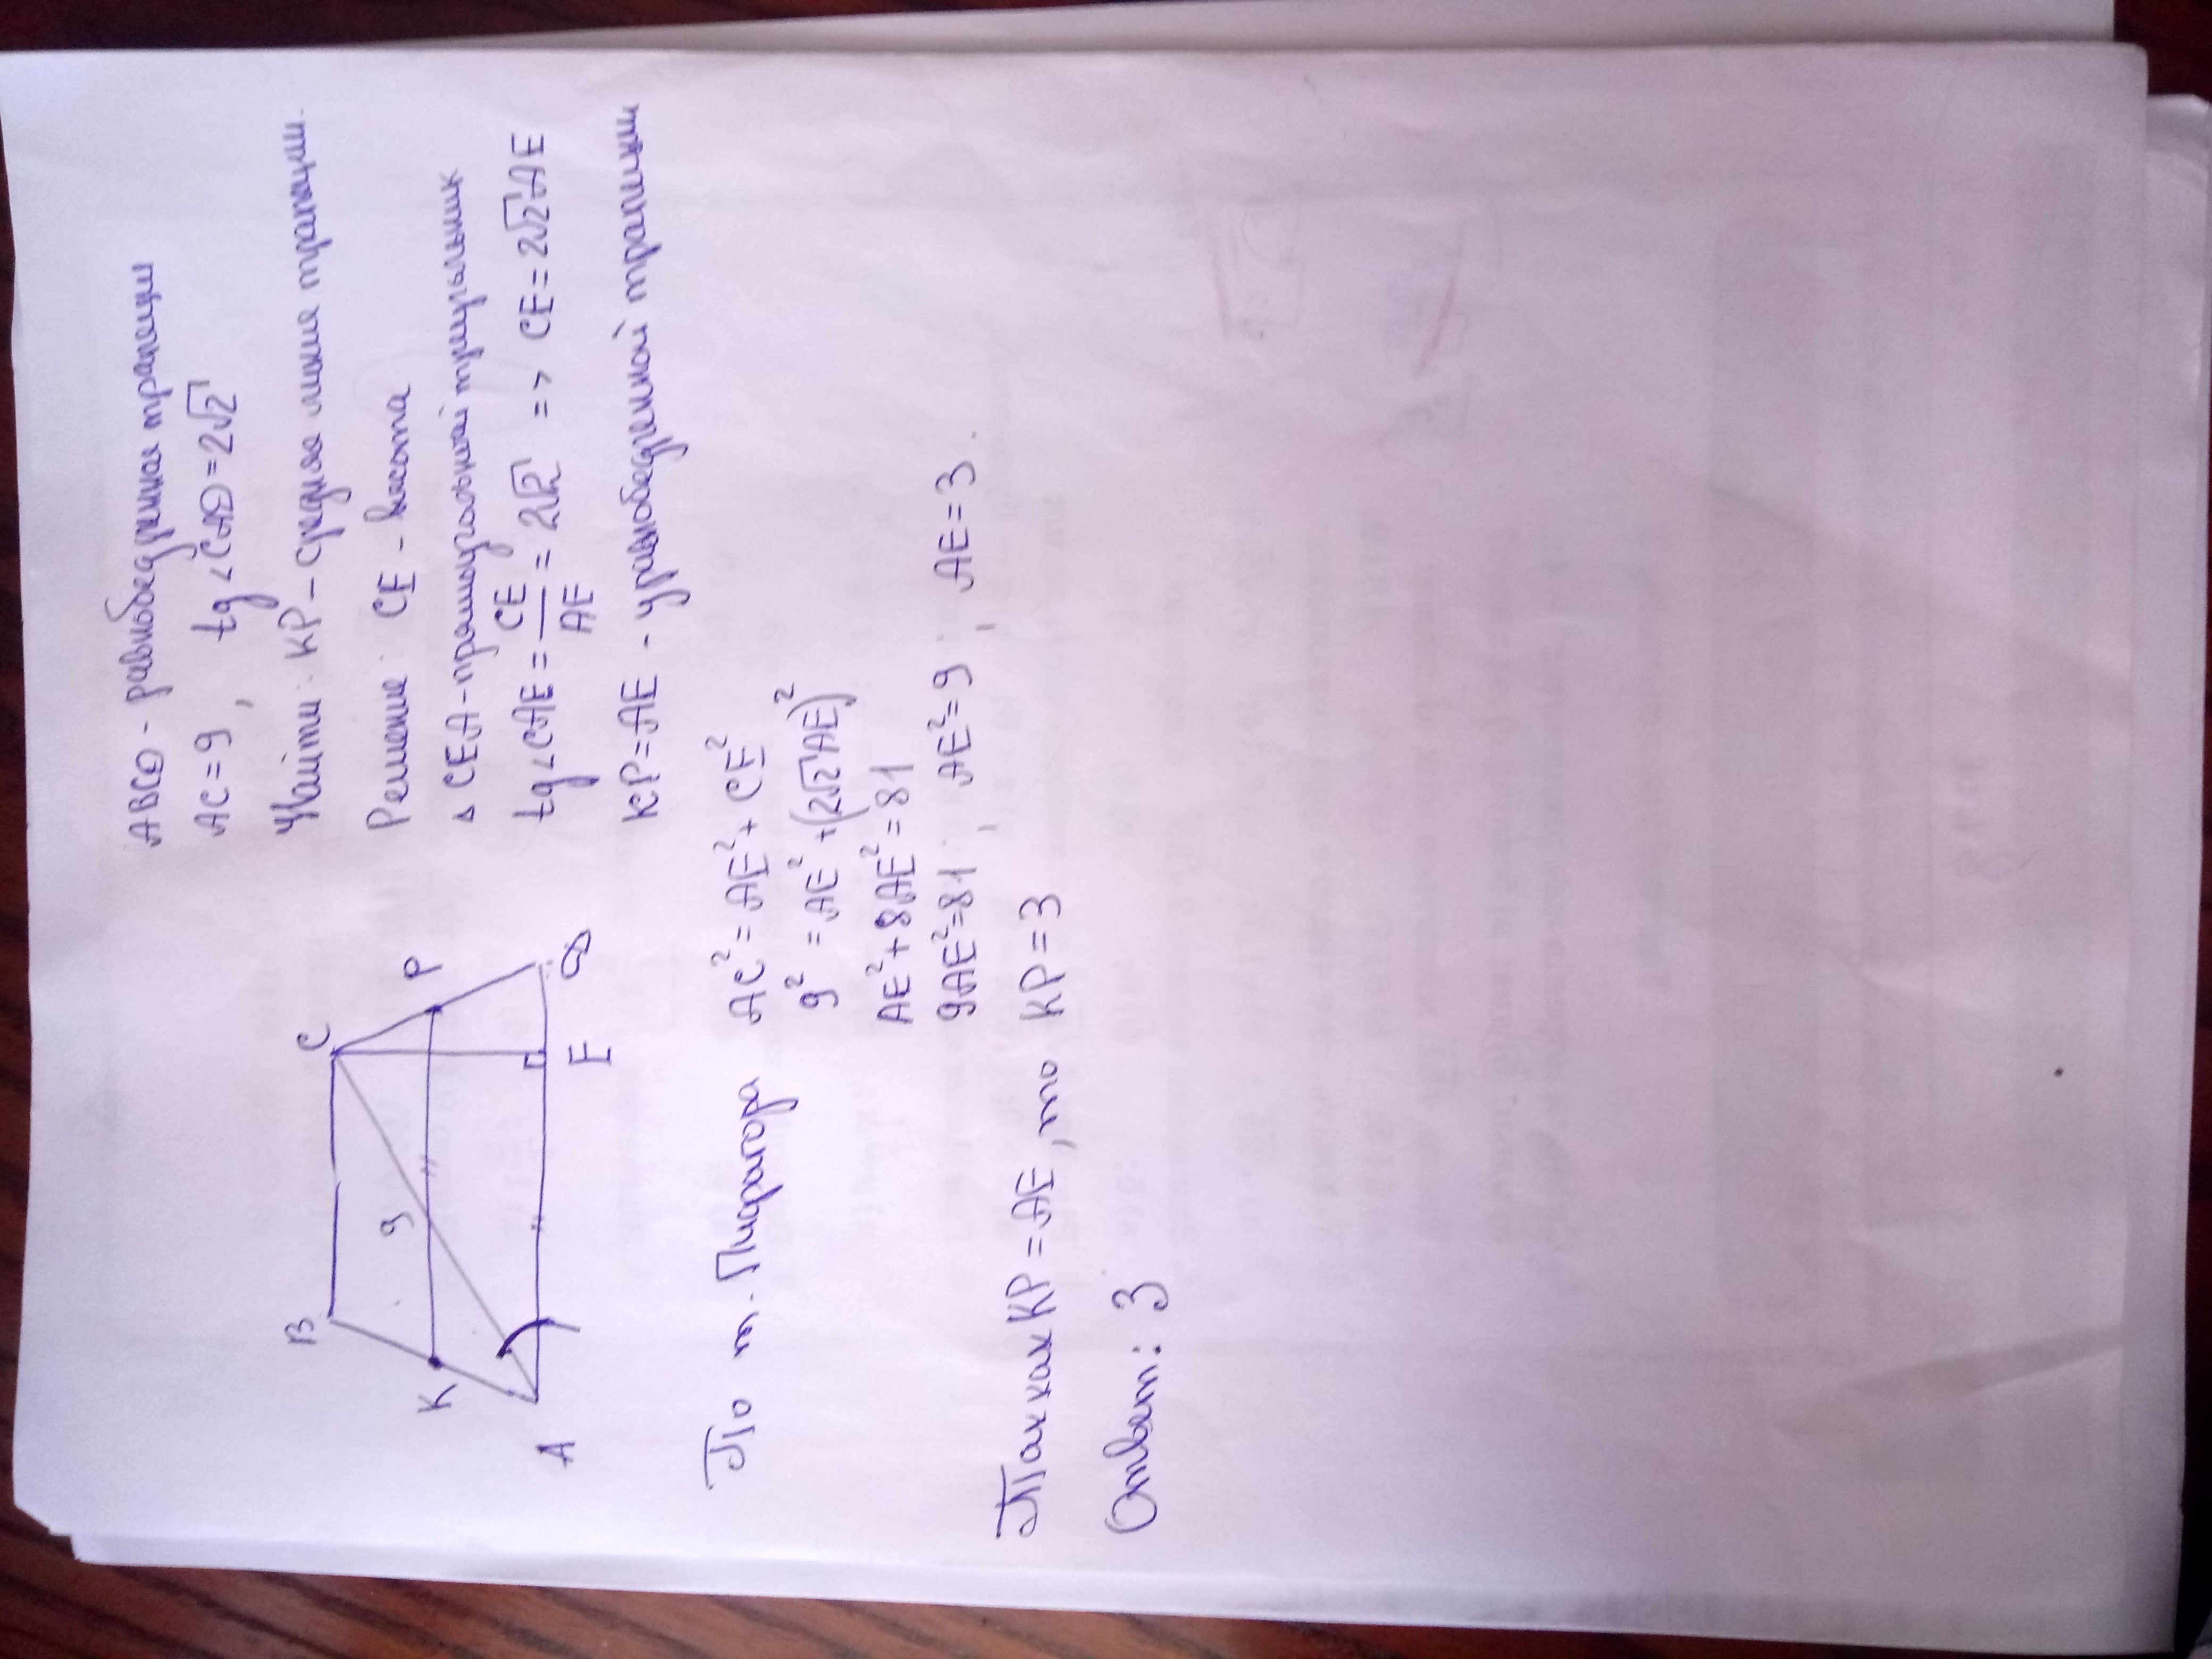 ABCD - равнобедренная трапеция
AC = 9, tg < CAD = 2√2
Найти: KP - средняя линия трапеции.
Решение: CE - высота
△ CEA - прямоугольный треугольник
tg < CAE = CE/AE = 2√2 => CE = 2√2 AE
KP = AE - уравнобедренной трапеции
B C
K 9 P
A E D
По т. Пифагора AC² = AE² + CE²
9² = AE² + (2√2 AE)²
AE² + 8AE² = 81
9AE² = 81, AE² = 9, AE = 3.
Так как KP = AE, то KP = 3
Ответ: 3